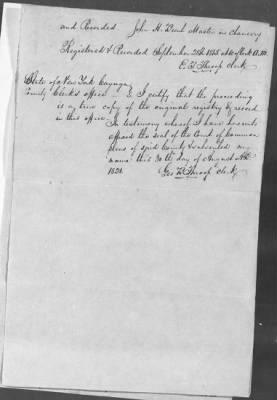 and Recorded John H. Beach Master in Chancery
Registered & Recorded September 28th 1825 at o'clock A.M.
E. T. Throop clerk
State of New York Cayuga
County Clerk's office I certify that the preceding
is a true copy of the original registry & record
in this office. In testimony whereof I have hereunto
affixed the seal of the Court of Common
Pleas of said County & subscribed my
name this 30th day of August A.D.
Geo. B. Throop clerk